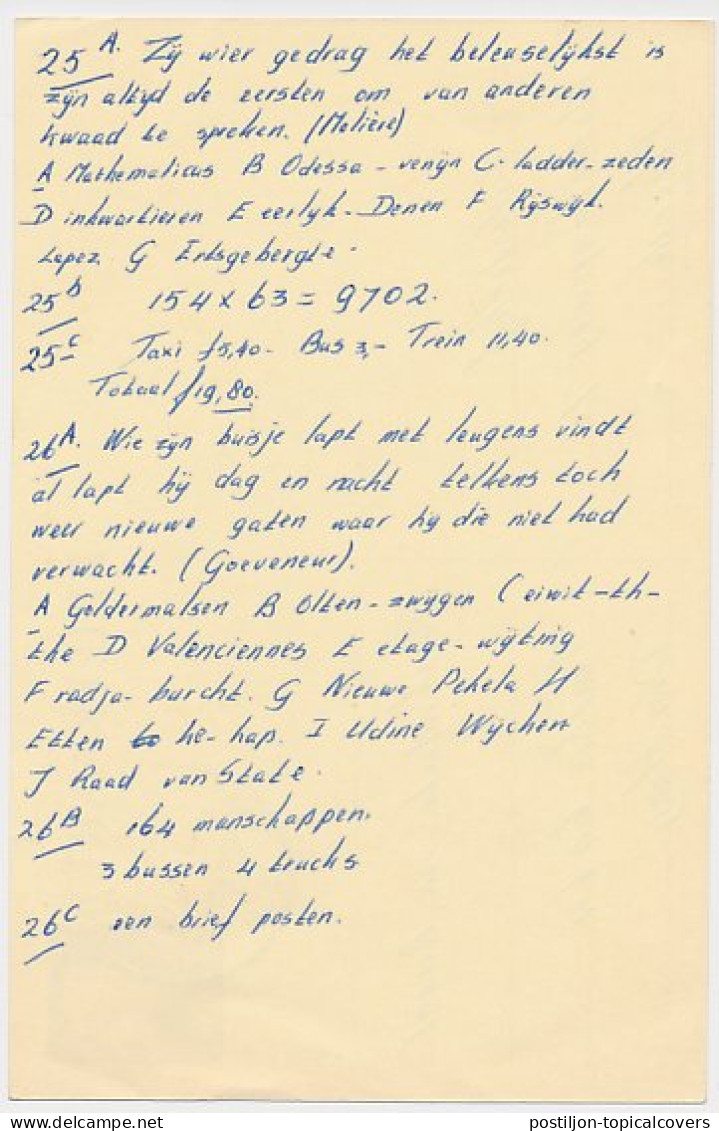 25 A. Zij wier gedrag het belenselijkst is
zijn altijd de eersten om van anderen
kwaad te spreken. (Molière)
A Mathematicus B Odessa - venijn C. ladder-zeden
D inkwartieren E eerlijk - Denen F Rijswijk.
Lopez G Ertsgebergte.
25 b 154 x 63 = 9702.
25 c Taxi f5,40 - Bus 3,- Trein 11,40.
Totaal f19,80.
26 A. Wie zijn buisje lapt met leugens vindt
al lapt hij dag en nacht telkens toch
weer nieuwe gaten waar hij die niet had
verwacht. (Goeveneur).
A Geldermalsen B Olten - zwijgen C eiwit - th-
the D Valenciennes E etage - wijting
F radja - burcht. G Nieuwe Pekela H
Etten he - hap. I Udine Wijchen
J Raad van State.
26 B 164 manschappen.
3 bussen 4 trucks
26 C een brief posten.
delcampe.net
postiljon-topicalcovers